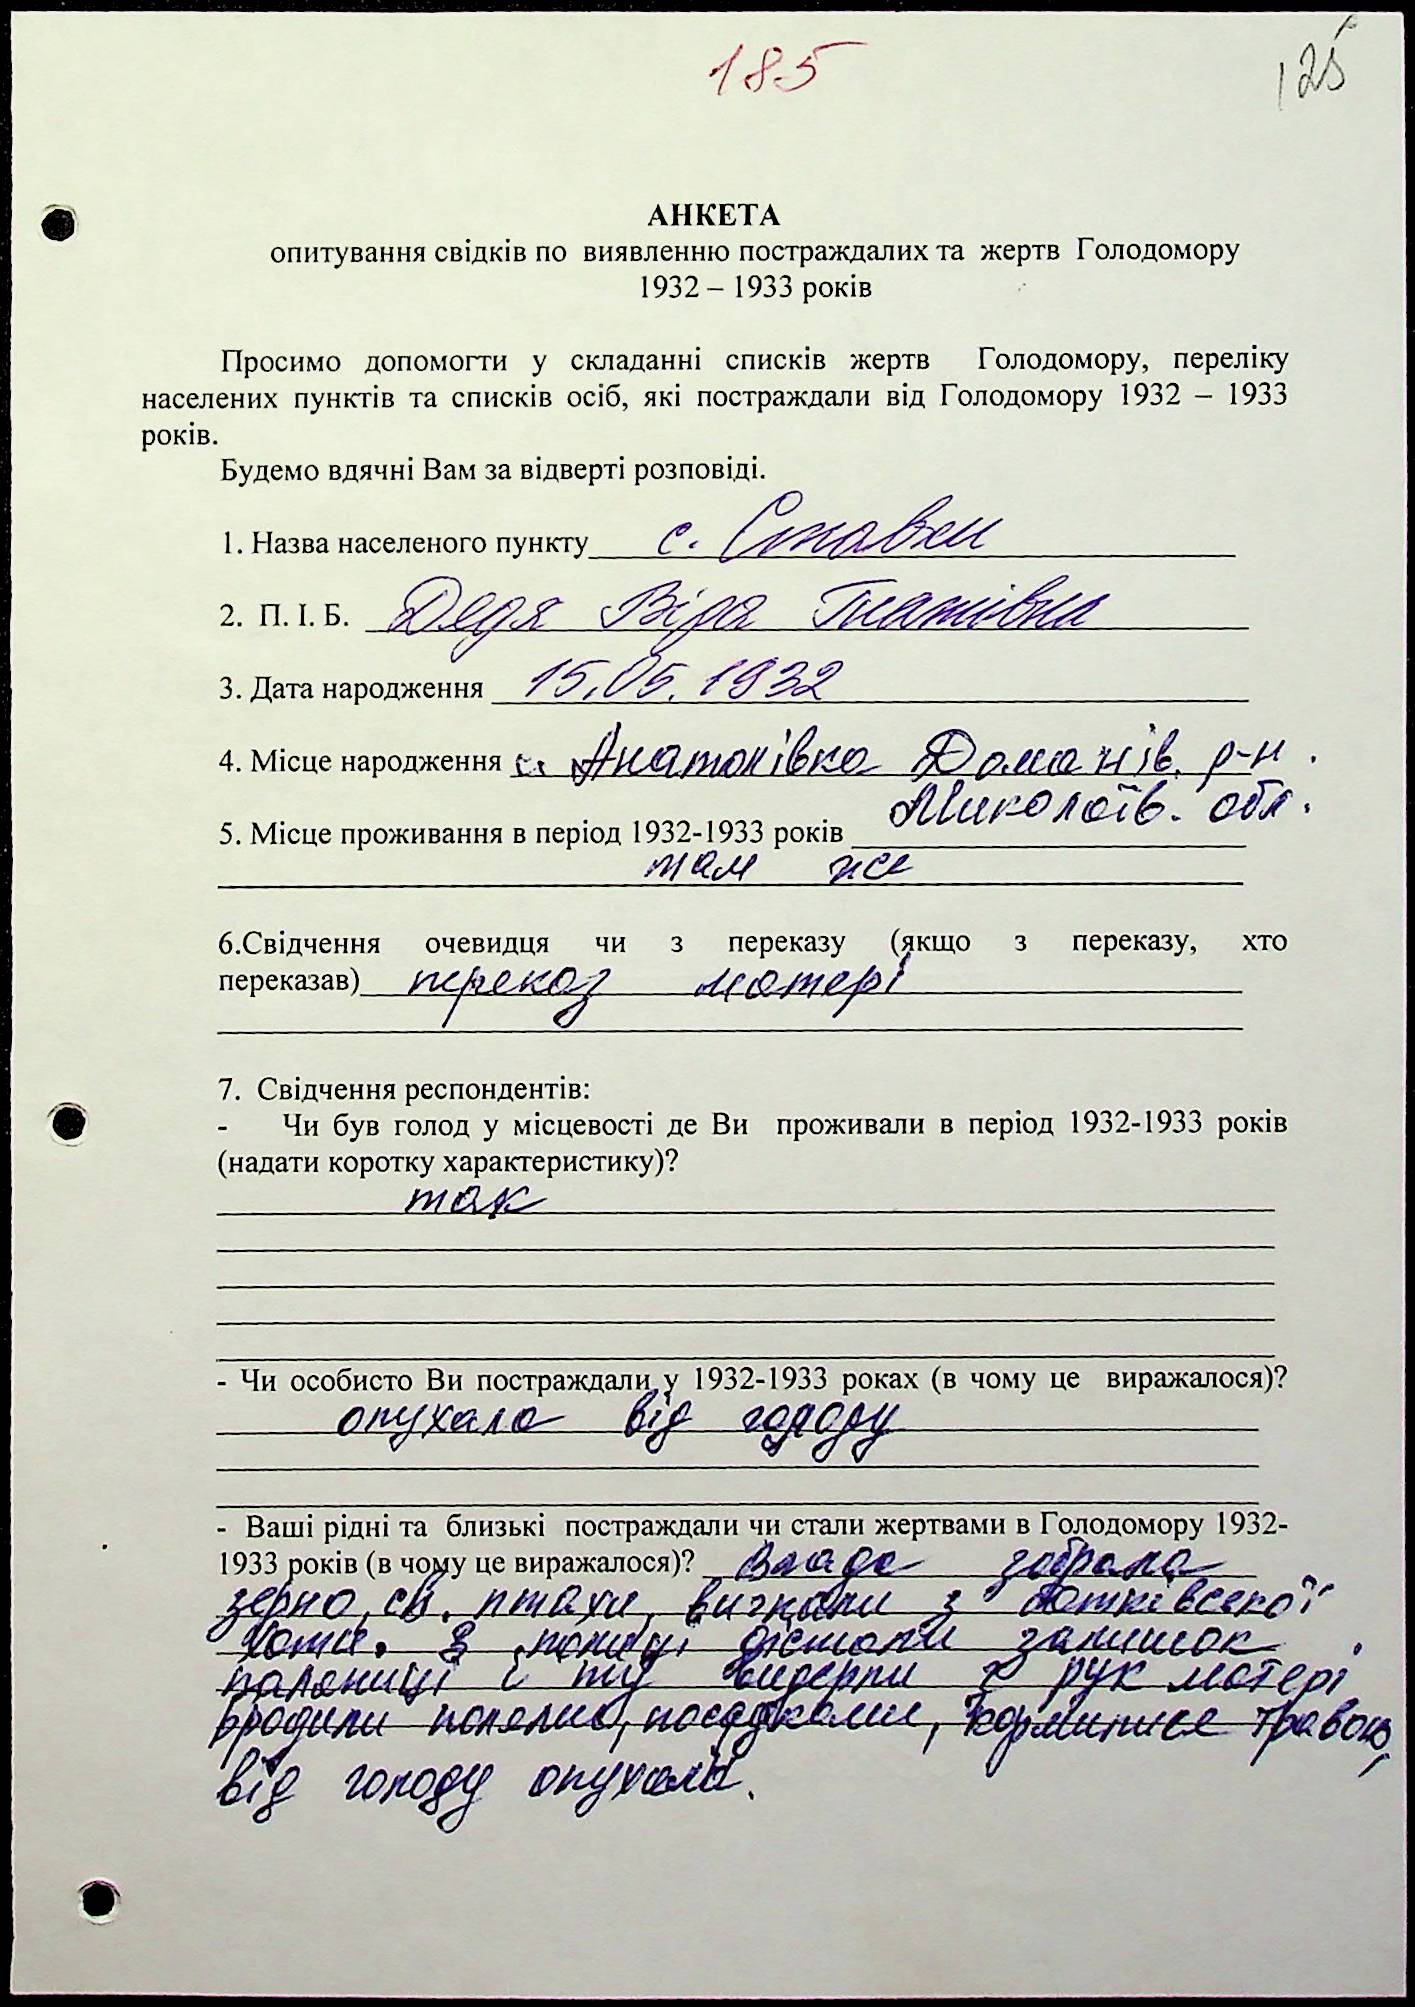 185
125
АНКЕТА
опитування свідків по виявленню постраждалих та жертв Голодомору
1932 – 1933 років
Просимо допомогти у складанні списків жертв Голодомору, переліку
населених пунктів та списків осіб, які постраждали від Голодомору 1932 – 1933
років.
Будемо вдячні Вам за відверті розповіді.
1. Назва населеного пункту с. Ставки
2. П. І. Б. Дедя Віра Гнатівна
3. Дата народження 15.05.1932
4. Місце народження с. Анатолівка Доманів. р-н.
Миколаїв. обл.
5. Місце проживання в період 1932-1933 років
там же
6.Свідчення очевидця чи з переказу (якщо з переказу, хто
переказав) переказ матері
7. Свідчення респондентів:
- Чи був голод у місцевості де Ви проживали в період 1932-1933 років
(надати коротку характеристику)?
так
- Чи особисто Ви постраждали у 1932-1933 роках (в чому це виражалося)?
опухала від голоду
- Ваші рідні та близькі постраждали чи стали жертвами в Голодомору 1932-
1933 років (в чому це виражалося)? Влада забрала
зерно, св. птахи, вигнали з батьківської
хати. З дістали залишок
паляниці і ту видерли з рук матері.
Бродили полями, посадками, кормились травою,
від голоду опухали.